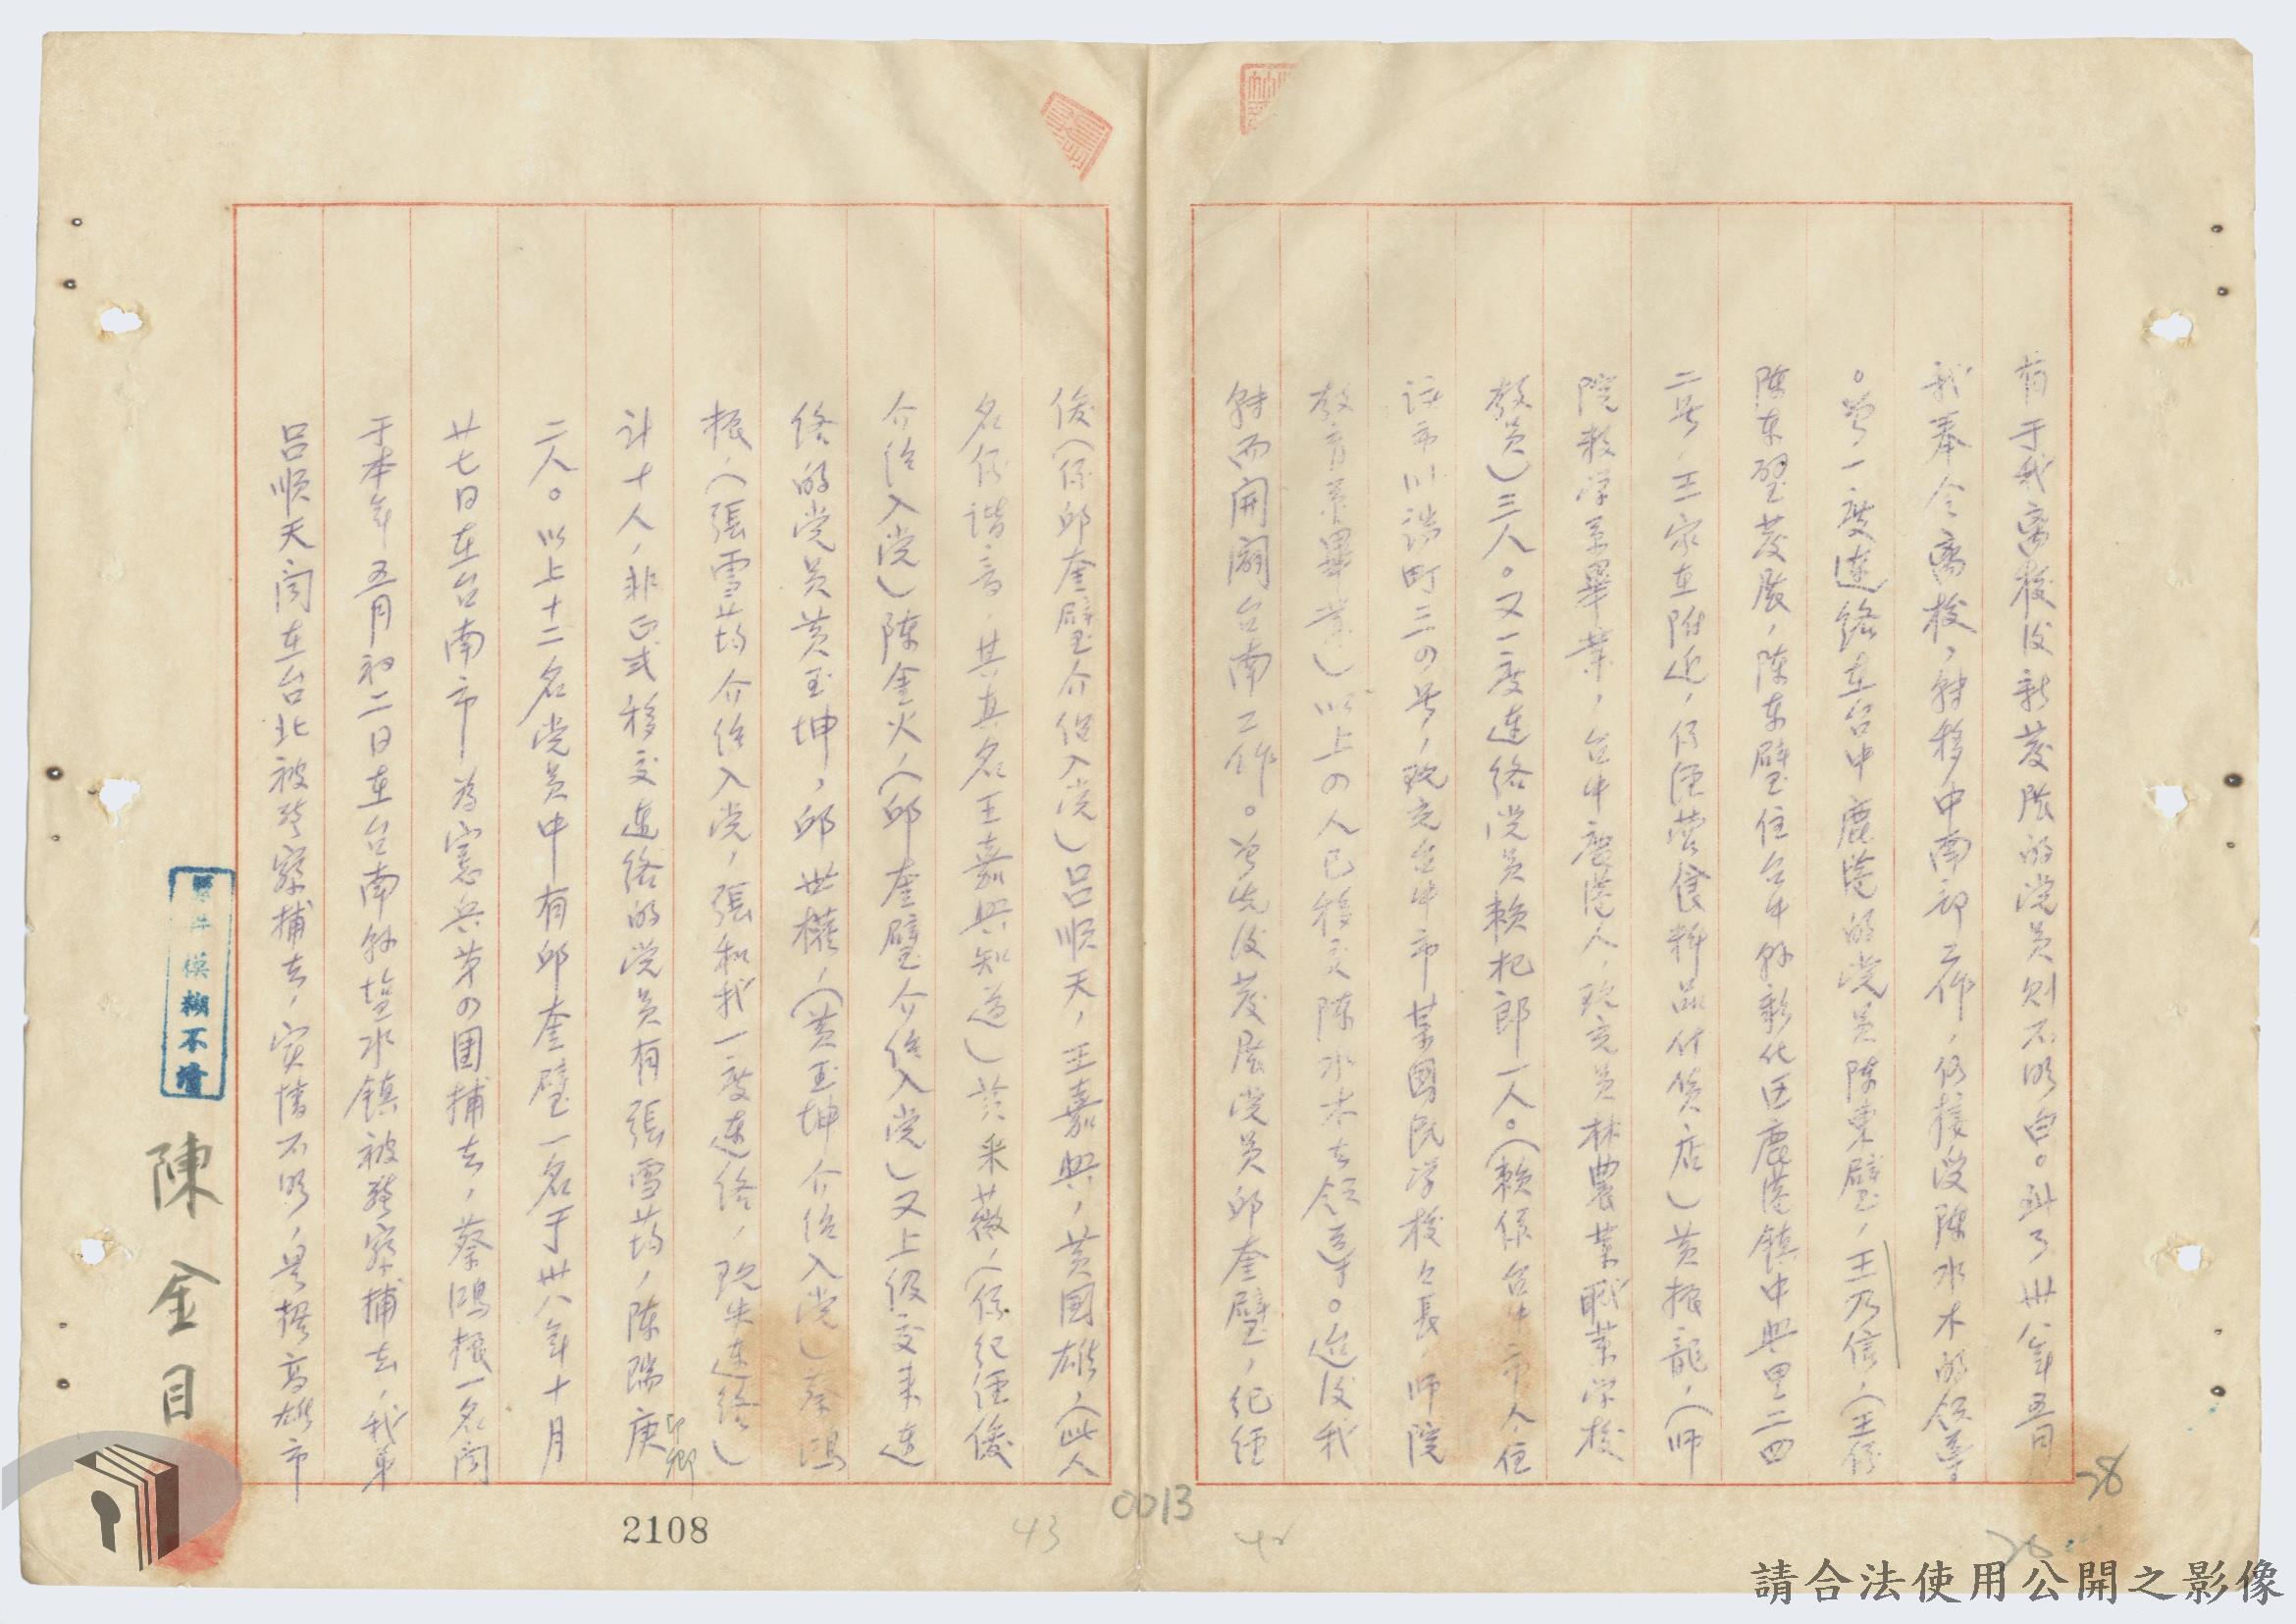 有于我离校後新发展的党员则不明白。到了卅八年五月
我奉令离校，转移中南部工作，仍接受陈水木的领导
。曾一度連絡在台中鹿港的党员陈東璧，王乃信，（王係
陈東璧发展，陈東璧住台中縣彰化区鹿港鎮中興里二四
二号，王家在附近，仍經营食料品什貨店）黄振龍，（师
院教育系畢業，台中鹿港人，現充员林農業職業学校
教员）三人。又一度連络党员赖杞郎一人。（赖係台中市人住
该市川端町三の号，現充台中市某國民学校々長，师院
教育系畢業）以上の人已移交陈水木去领導。迨後我
转而開闢台南工作。曾先後发展党员邱奎璧，纪經
俊（係邱奎璧介绍入党）吕順天，王嘉興，黄國雄，（此人
名係谐音，其真名王嘉興知道）黄采薇，（係纪經俊
介绍入党）陈金火，（邱奎璧介绍入党）又上级交来連
络的党员黄玉坤，邱世權，（黄玉坤介绍入党）蔡鴻
振，（張雪筠介绍入党，張和我一度連络，現失連络）
计十人，非正式移交連络的党员有張雪筠，陈瑞庚
二人。以上十二名党员中有邱奎璧一名于卅八年十月
廿七日在台南市为憲兵第の團捕去，蔡鴻振一名闻
于本年五月初二日在台南縣塩水鎮被警察捕去，我弟
吕順天闻在台北被警察捕去，实情不明，是据高雄市
原件模糊不清
陳金目
0013
2108
43
42
28
請合法使用公開之影像